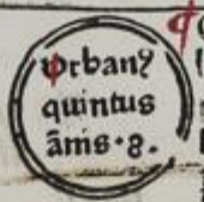 Vrbanꝰ
quintus
ãnis·8.